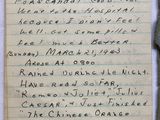 TODAY
Went to the Hospital
because I didn't feel
well. Got some pills &
feel much better.
(Sunday) March 21, 1943
Arose at 0800
Rained during the night.
Have read so far,
"Romeo & Juliet", "Julius
Caesar". & Just finished
The Chinese Orange